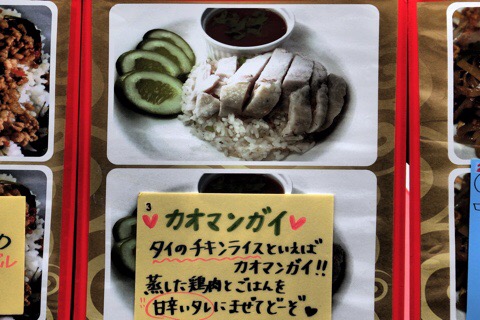 3
♥カオマンガイ♥
タイのチキンライスといえば
カオマンガイ!!
蒸した鶏肉とごはんを
"甘辛いタレにまぜてどーぞ♥
の
プル